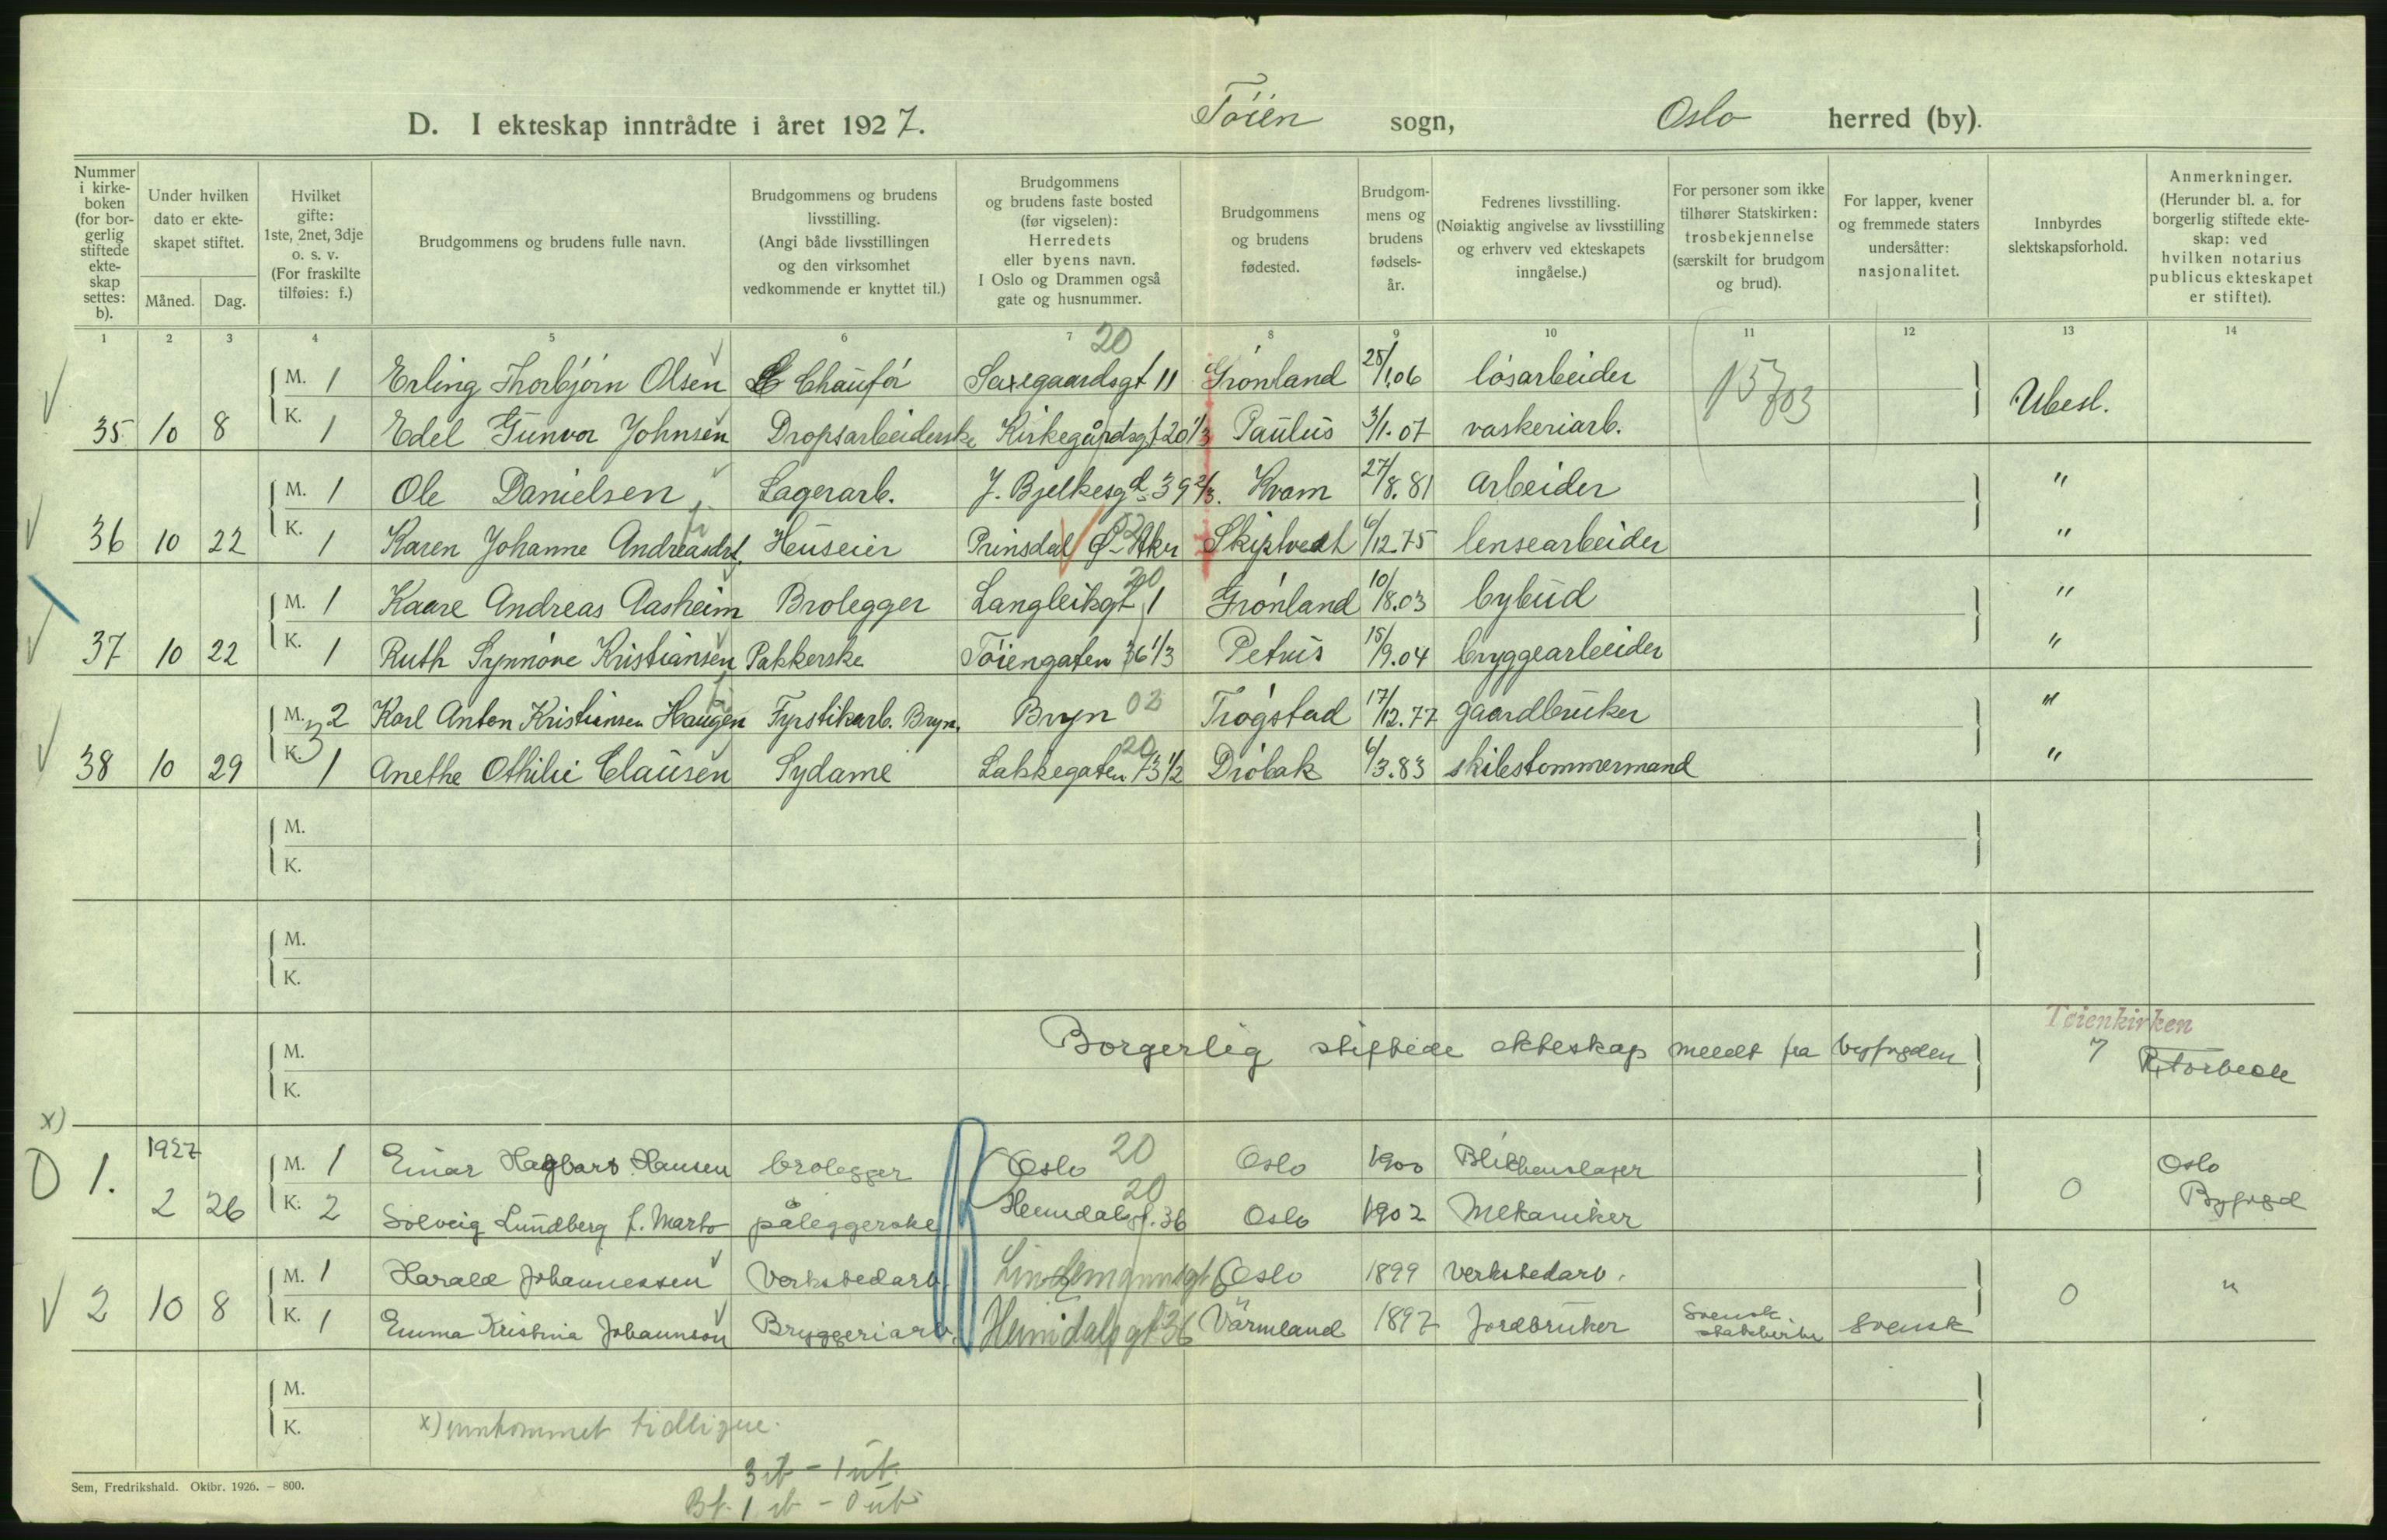 D. I ekteskap inntrådte i året 1927. Tøien sogn, Oslo herred (by).
Nummer i kirkeboken (for borgerlig stiftede ekteskap settes: b).
Under hvilken dato er ekteskapet stiftet.
Måned. Dag.
Hvilket gifte: 1ste, 2net, 3dje o. s. v. (For fraskilte tilføies: f.)
Brudgommens og brudens fulle navn.
Brudgommens og brudens livsstilling. (Angi både livsstillingen og den virksomhet vedkommende er knyttet til.)
Brudgommens og brudens faste bosted (før vigselen): Herredets eller byens navn. I Oslo og Drammen også gate og husnummer.
Brudgommens og brudens fødested.
Brudgommens og brudens fødselsår.
Fedrenes livsstilling. (Nøiaktig angivelse av livsstilling og erhverv ved ekteskapets inngåelse.)
For personer som ikke tilhører Statskirken: trosbekjennelse (særskilt for brudgom og brud).
For lapper, kvener og fremmede staters undersåtter: nasjonalitet.
Innbyrdes slektskapsforhold.
Anmerkninger. (Herunder bl. a. for borgerlig stiftede ekteskap: ved hvilken notarius publicus ekteskapet er stiftet).
1 2 3 4 5 6 7 8 9 10 11 12 13 14
20
M. 1 Erling Thorbjørn Olsen Chaufør Saxegaardsgt 11 Grønland 25/1.06 løsarbeider
35 10 8 K. 1 Edel Gunvor Johnsen Dropsarbeiderske Kirkegårdsgt 20 1/3 Paulus 3/1.07 vaskeriarb. Ubesl.
M. 1 Ole Danielsen Lagerarb. J. Bjelkesgd. 39 2/3. Kvam 27/8.81 arbeider "
36 10 22 K. 1 Karen Johanne Andreasdt. Huseier Prinsdal Ø. Aker Skiptvedt 6/12.75 lensearbeider "
M. 1 Kaare Andreas Aasheim Brolegger Langleikgt 1 20 Grønland 10/8.03 bybud "
37 10 22 K. 1 Ruth Synnøve Kristiansen Pakkerske Tøiengaten 36 1/3 Petrus 15/9.04 bryggearbeider "
M. 2 Karl Anton Kristiansen Haugen Fyrstikarb. Bryn. Bryn 02 Trøgstad 17/12.77 gaardbruker "
38 10 29 K. 1 Anethe Othilie Clausen Sydame Lakkegaten 20 Drøbak 6/3.83 skibstømmermand "
M.
K.
M.
K.
Tøienkirken
M. Borgerlig stiftede ekteskap meldt fra byfogden 7
K.
x)
1927
1. M. 1 Einar Hagbart Hansen brolegger Oslo 20 Oslo 1900 Blikkenslager Oslo
2 26 K. 2 Solveig Lundberg f. Marto påleggerske Heimdalsgt. 36 20 Oslo 1902 Mekaniker 0 Byfogd
M. 1 Harald Johannessen Verkstedarb. Lindemannsgt 6 Oslo 1899 Verkstedarb. "
2 10 8 K. 1 Emma Kristina Johannson Bryggeriarb. Heimdalsgt 36 Värmland 1897 Jordbruker Svensk statskirke Svensk 0
M.
K. x) innkommet tidligere.
3 - 1
Sem, Fredrikshald. Oktbr. 1926. — 800.